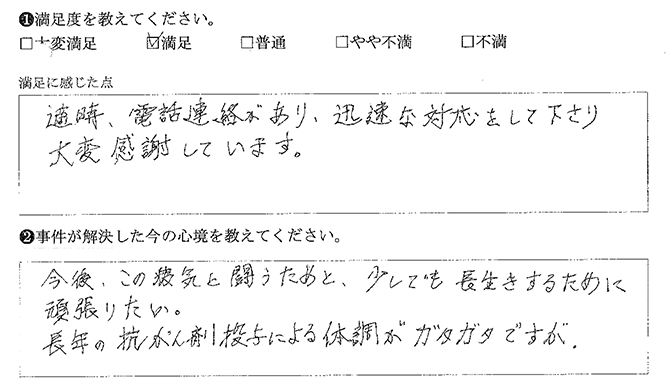 ❶満足度を教えてください。
□大変満足 ☑満足 □普通 □やや不満 □不満
満足に感じた点
適時、電話連絡があり、迅速な対応をして下さり
大変感謝しています。
❷事件が解決した今の心境を教えてください。
今後、この病気と闘うためと、少しでも長生きするために
頑張りたい。
長年の抗がん剤投与による体調がガタガタですが、